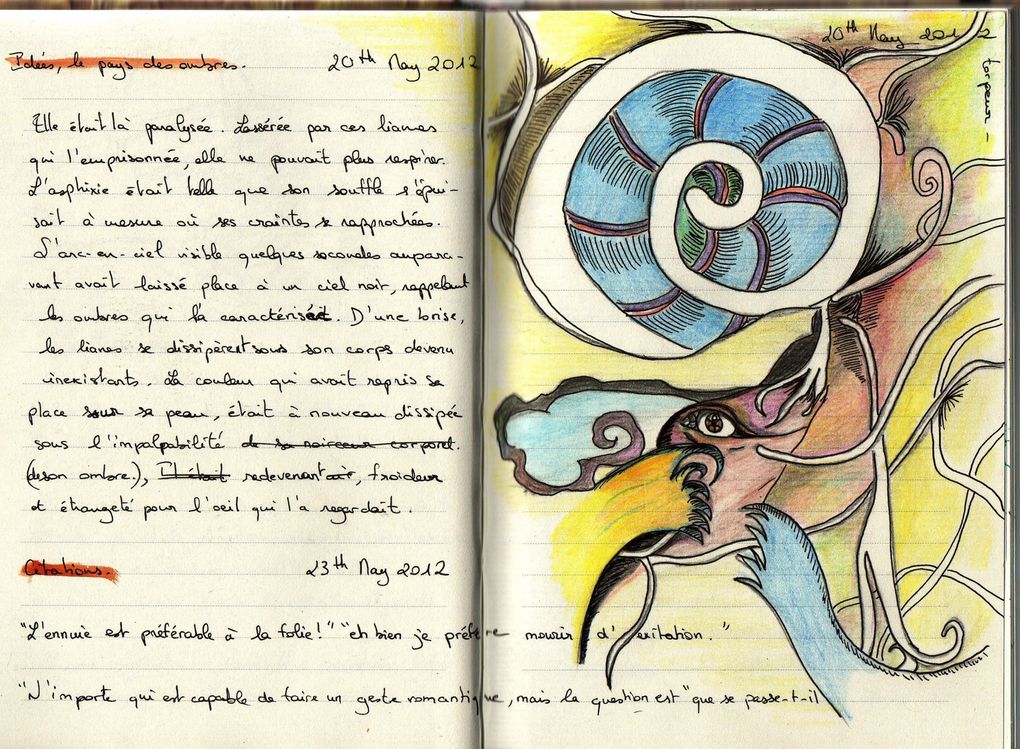 Idées, le pays des ombres. 20th May 2012
Elle était là paralysée. Lassérée par ces lianes
qui l'emprisonnée, elle ne pouvait plus respirer.
L'asphixie était telle que son souffle s'épui-
sait à mesure où ses craintes se rapprochées.
L'arc-en-ciel visible quelques secondes aupara-
vant avait laissé place à un ciel noir, rappelant
les ombres qui la caractérisait. D'une brise,
les lianes se dissipèrent sous son corps devenu
inexistants. La couleur qui avait repris sa
place sur sa peau, était à nouveau dissipée
sous l'impalpabilité de sa noirceur corporel.
(de son ombre.), Il était redevenant, froideur
et étrangeté pour l'oeil qui l'a regardait.
Citations. 23th May 2012
"L'ennuie est préférable à la folie!" "eh bien je préfère mourir d'exitation."
"N'importe qui est capable de faire un geste romantique, mais la question est "que se passe-t-il
20th May 2012
torpeur -